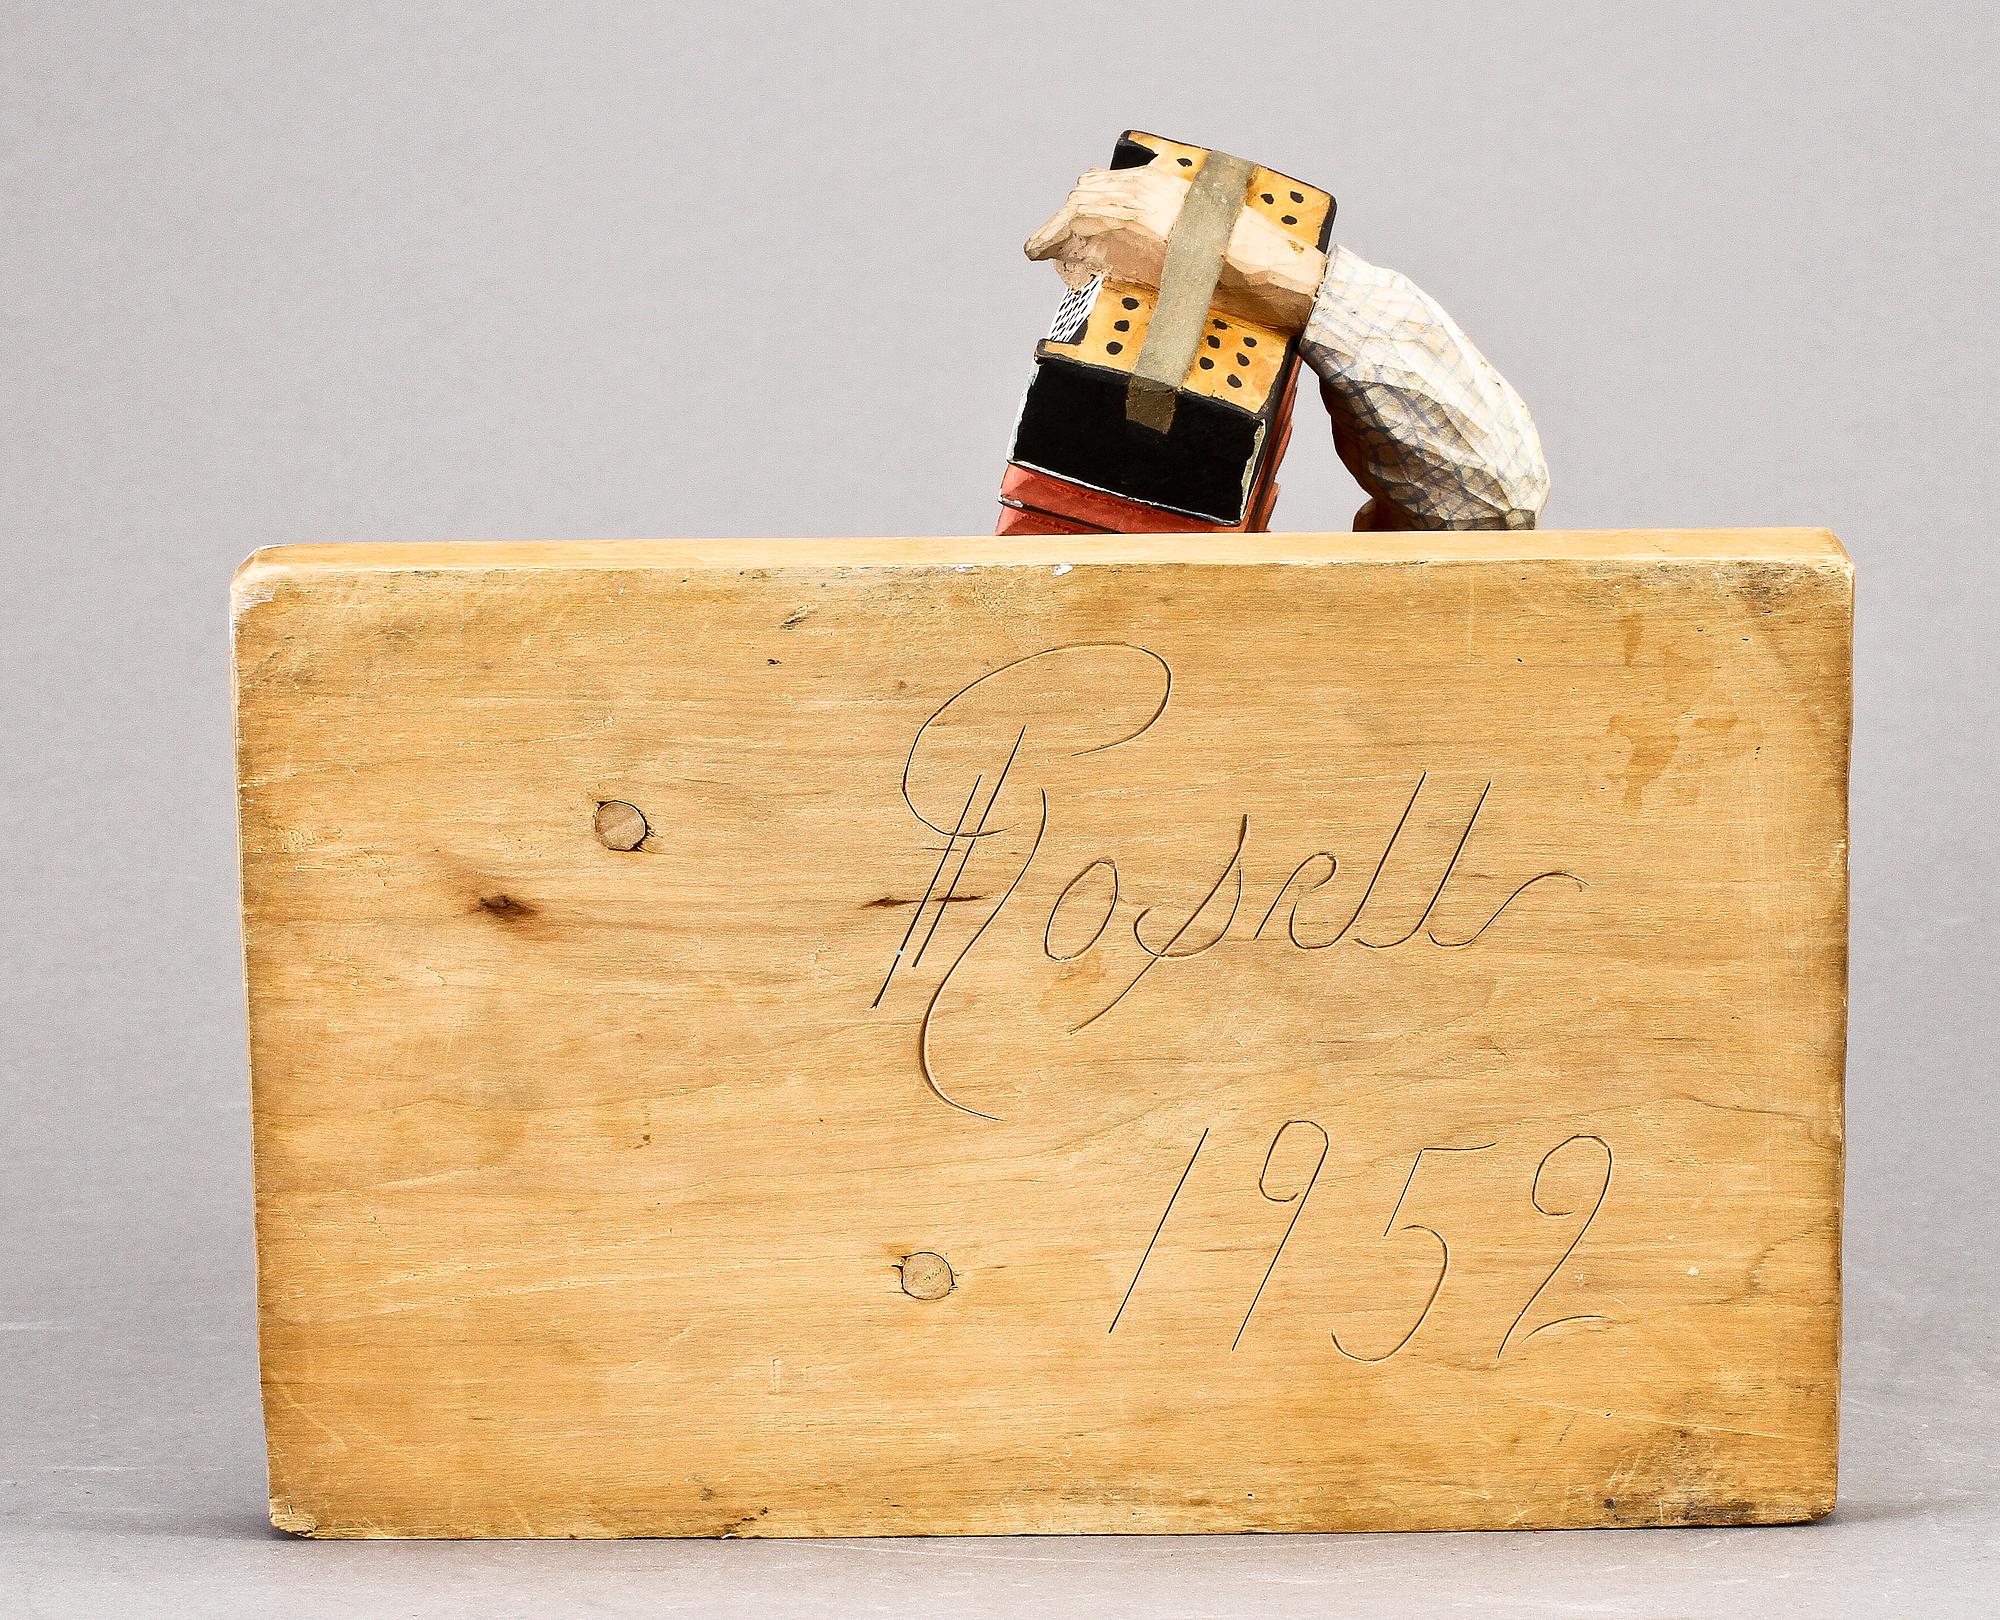 Rosell
1952